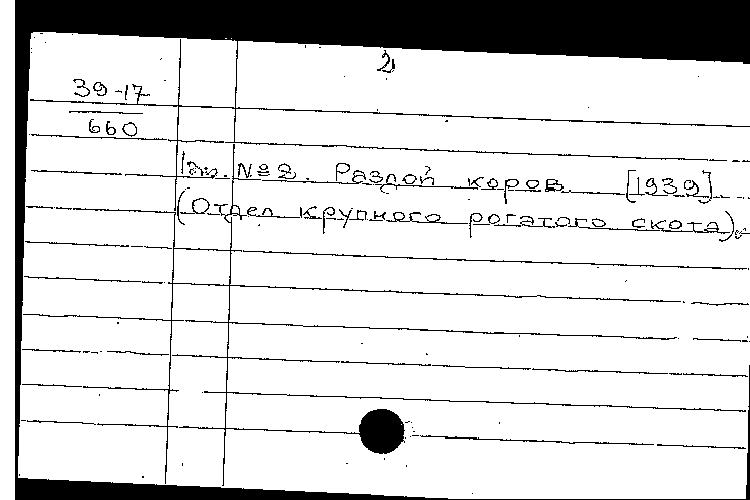 2
39-17
660
№ 2. Раздой коров [1939]
(Отдел крупного рогатого скота).